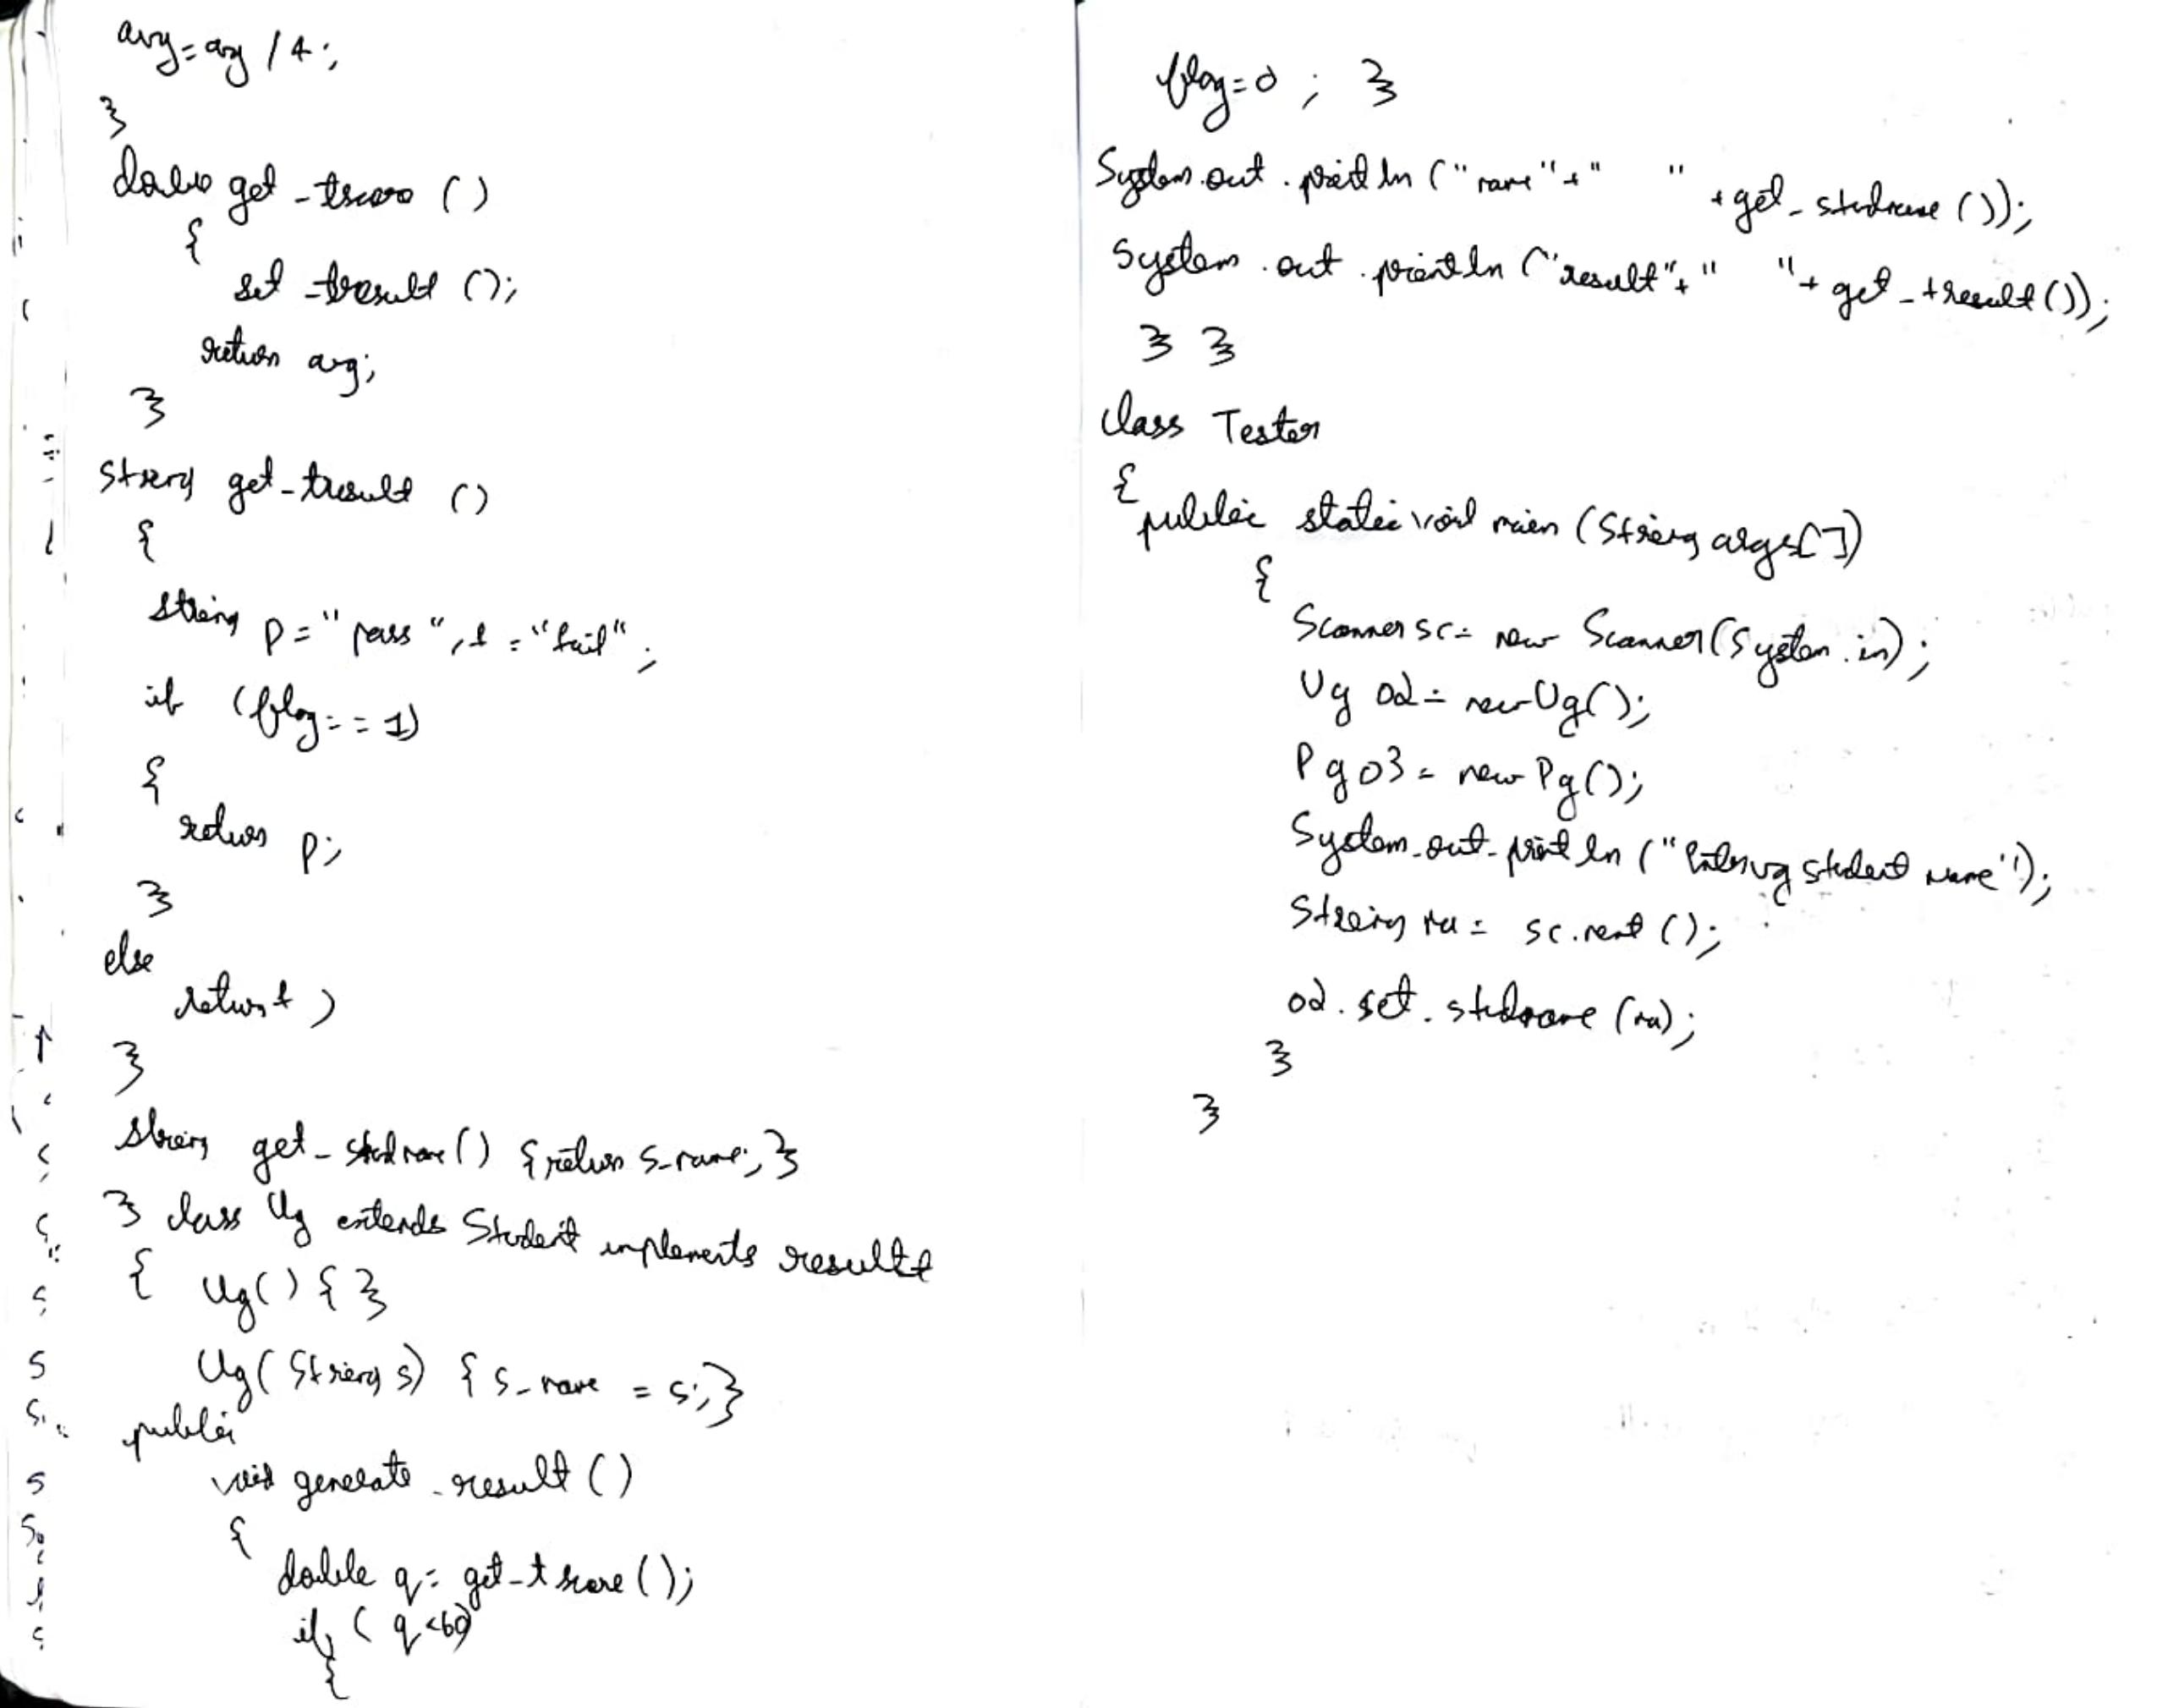 avg=avg / 4;
}
double get_tscore ()
{
set_tresult ();
return avg;
}
String get_tresult ()
{
string p="pass", f="fail";
if (flag==1)
{
return p;
}
else
return f;
}
string get_studname() {return s_name;}
} class Ug extends Student implements result
{ Ug() { }
Ug(String s) { s_name = s;}
public
void generate_result ()
{
double q= get_tscore ();
if ( q<60)
{
flag=0 ; }
System.out.println ("name"+" " +get_studname ());
System.out.println ("result"+" "+ get_tresult ());
} }
class Tester
{
public static void main (String args[])
{
Scanner sc= new Scanner(System.in);
Ug o2= new Ug();
Pg o3= new Pg();
System.out.println ("Enter ug student name");
String na= sc.next ();
o2.set.studname (na);
}
}